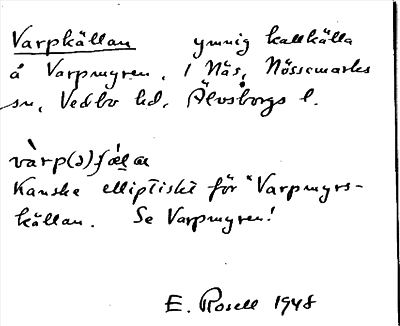 Varpkällan ymnig kallkälla
å Varpmyren, i Näs, Nössemarks
sn, Vedbo hd, Älvsborgs l.
vàrp(ə)ʃæ̀lα
Kanske elliptiskt för "Varpmyrs-
källan. Se Varpmyren!
E. Rosell 1948